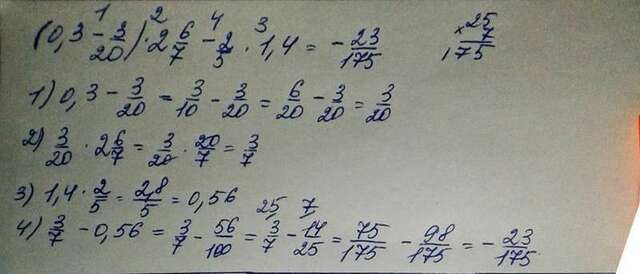 1 2 4 3
(0,3 - 3/20) · 2 6/7 - 2/5 · 1,4 = - 23/175
25
× 7
175
1) 0,3 - 3/20 = 3/10 - 3/20 = 6/20 - 3/20 = 3/20
2) 3/20 · 2 6/7 = 3/20 · 20/7 = 3/7
3) 1,4 · 2/5 = 2,8/5 = 0,56
25 7
4) 3/7 - 0,56 = 3/7 - 56/100 = 3/7 - 14/25 = 75/175 - 98/175 = - 23/175